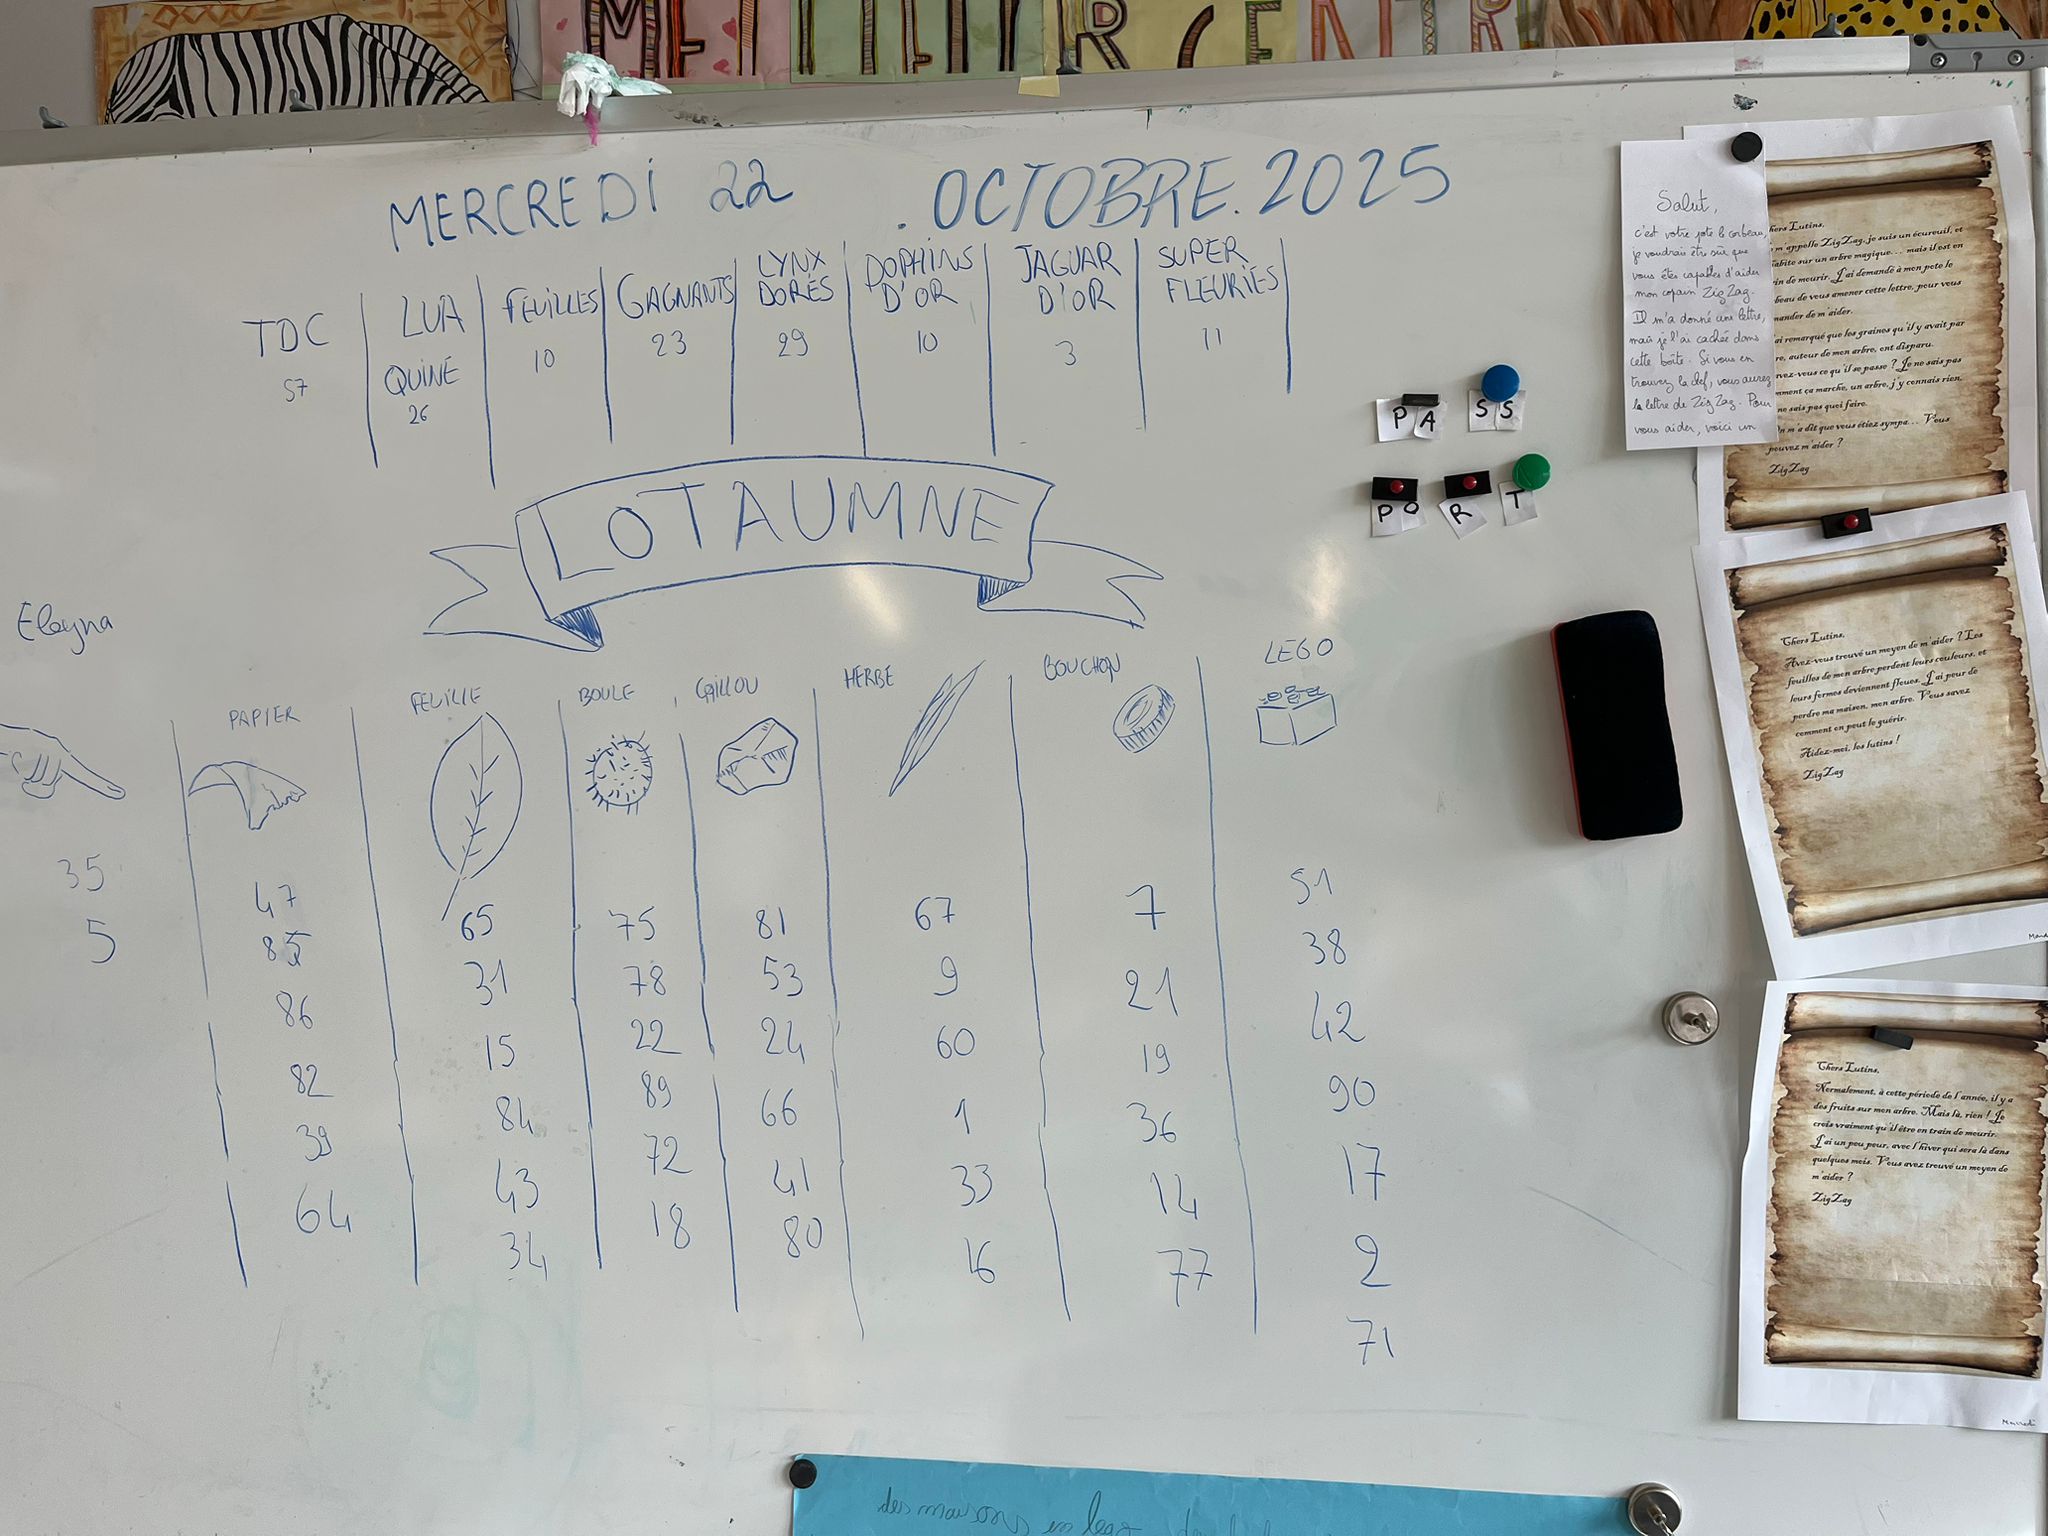 MEILLEUR CENTR
MERCREDI 22 . OCTOBRE. 2025
TDC
57
LUA
QUINE
26
FEUILLES
10
GAGNANTS
23
LYNX
DORÉS
29
DOPHINS
D'OR
10
JAGUAR
D'OR
3
SUPER
FLEURIES
11
PASS
PORT
LOTAUMNE
35
5
PAPIER
47
85
86
82
39
64
FEUILLE
65
31
15
84
43
34
BOULE
75
78
22
89
72
18
CAILLOU
81
53
24
66
41
80
HERBE
67
9
60
1
33
16
BOUCHON
7
21
19
36
14
77
LEGO
51
38
42
90
17
2
71
Salut,
c'est votre pote le corbeau,
je voudrais être sûr que
vous êtes capables d'aider
mon copain ZigZag.
Il m'a donné une lettre,
mais je l'ai cachée dans
cette boîte. Si vous en
trouvez la clef, vous aurez
la lettre de ZigZag. Pour
vous aider, voici un
hers Lutins,
m'appelle ZigZag, je suis un écureuil, et
abite sur un arbre magique... mais il est en
in de mourir. J'ai demandé à mon pote le
beau de vous amener cette lettre, pour vous
mander de m'aider.
ai remarqué que les graines qu'il y avait par
re, autour de mon arbre, ont disparu.
avez-vous ce qu'il se passe ? Je ne sais pas
mment ça marche, un arbre, j'y connais rien,
ne sais pas quoi faire.
n m'a dit que vous étiez sympa... Vous
pouvez m'aider ?
ZigZag
Chers Lutins,
Avez-vous trouvé un moyen de m'aider ? Les
feuilles de mon arbre perdent leurs couleurs, et
leurs formes deviennent floues. J'ai peur de
perdre ma maison, mon arbre. Vous savez
comment on peut le guérir.
Aidez-moi, les lutins !
ZigZag
Chers Lutins,
Normalement, à cette période de l'année, il y a
des fruits sur mon arbre. Mais là, rien ! Je
crois vraiment qu'il être en train de mourir.
J'ai un peu peur, avec l'hiver qui sera là dans
quelques mois. Vous avez trouvé un moyen de
m'aider ?
ZigZag